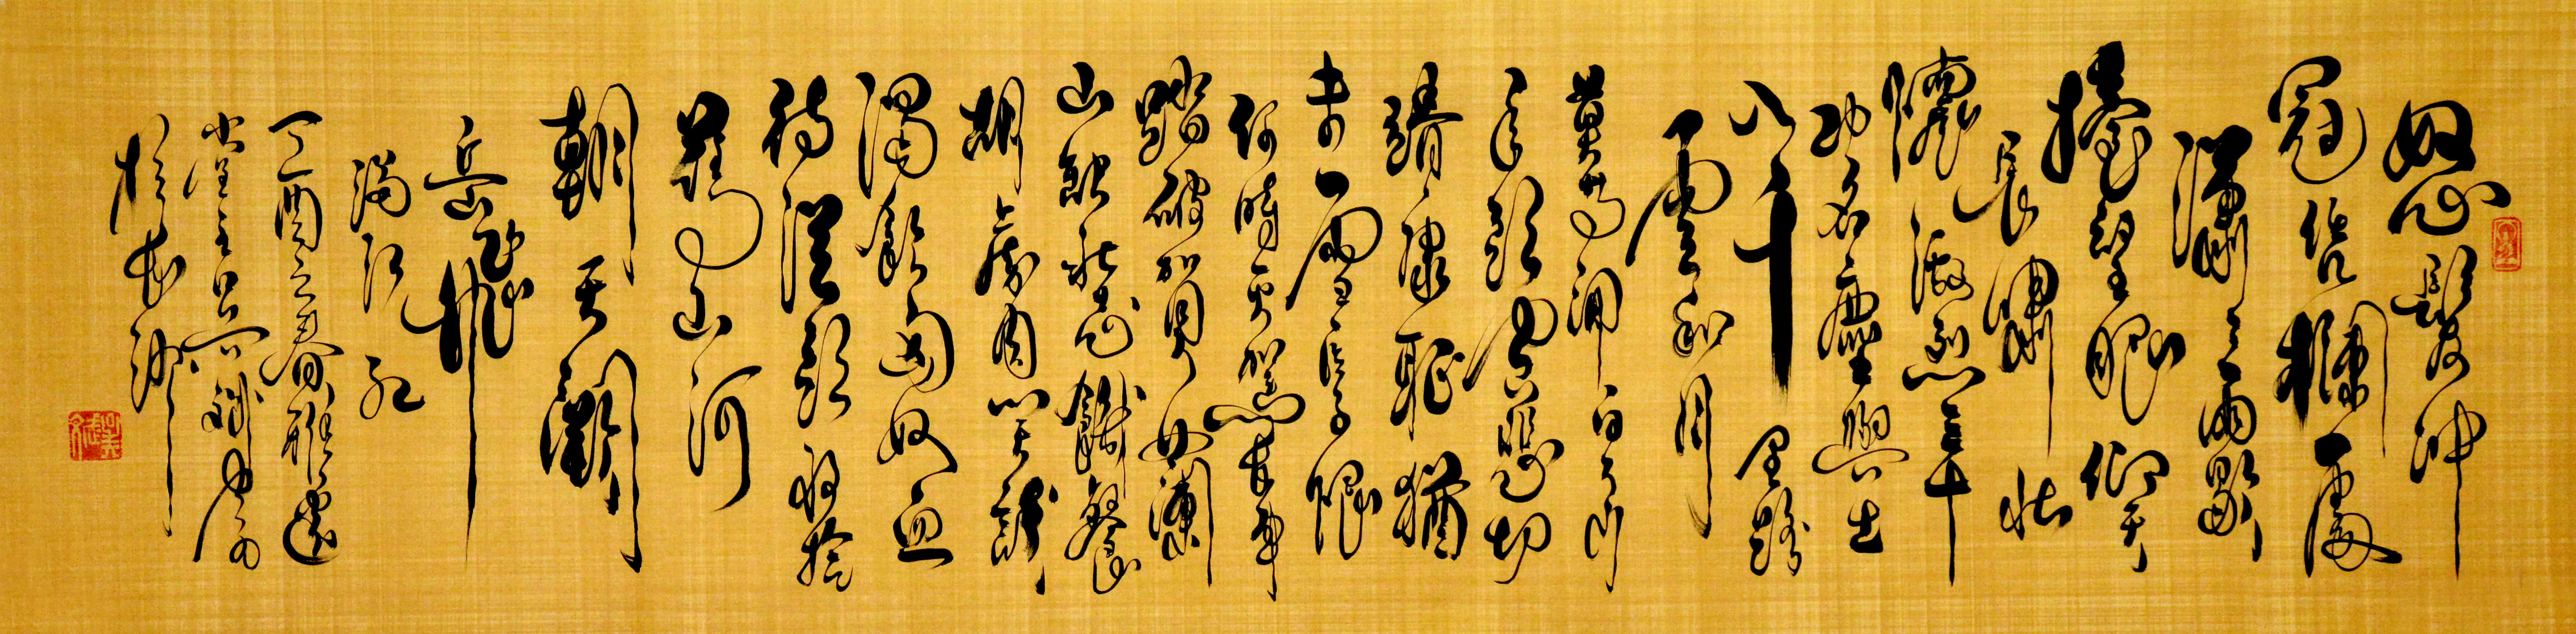 怒髮冲
冠凭欄處
瀟瀟雨歇
擡望眼仰天
長嘯壯
懷激烈三十
功名塵與土
八千里路
雲和月
莫等閒白了少
年頭空悲切
靖康恥猶
未雪臣子恨
何時灭駕長車
踏破賀蘭
山缺壯志饑餐
胡虜肉笑談
渴飲匈奴血
待從頭收拾
舊山河
朝天闕
岳飛
滿江紅
丁酉之春雅
堂主
於長沙